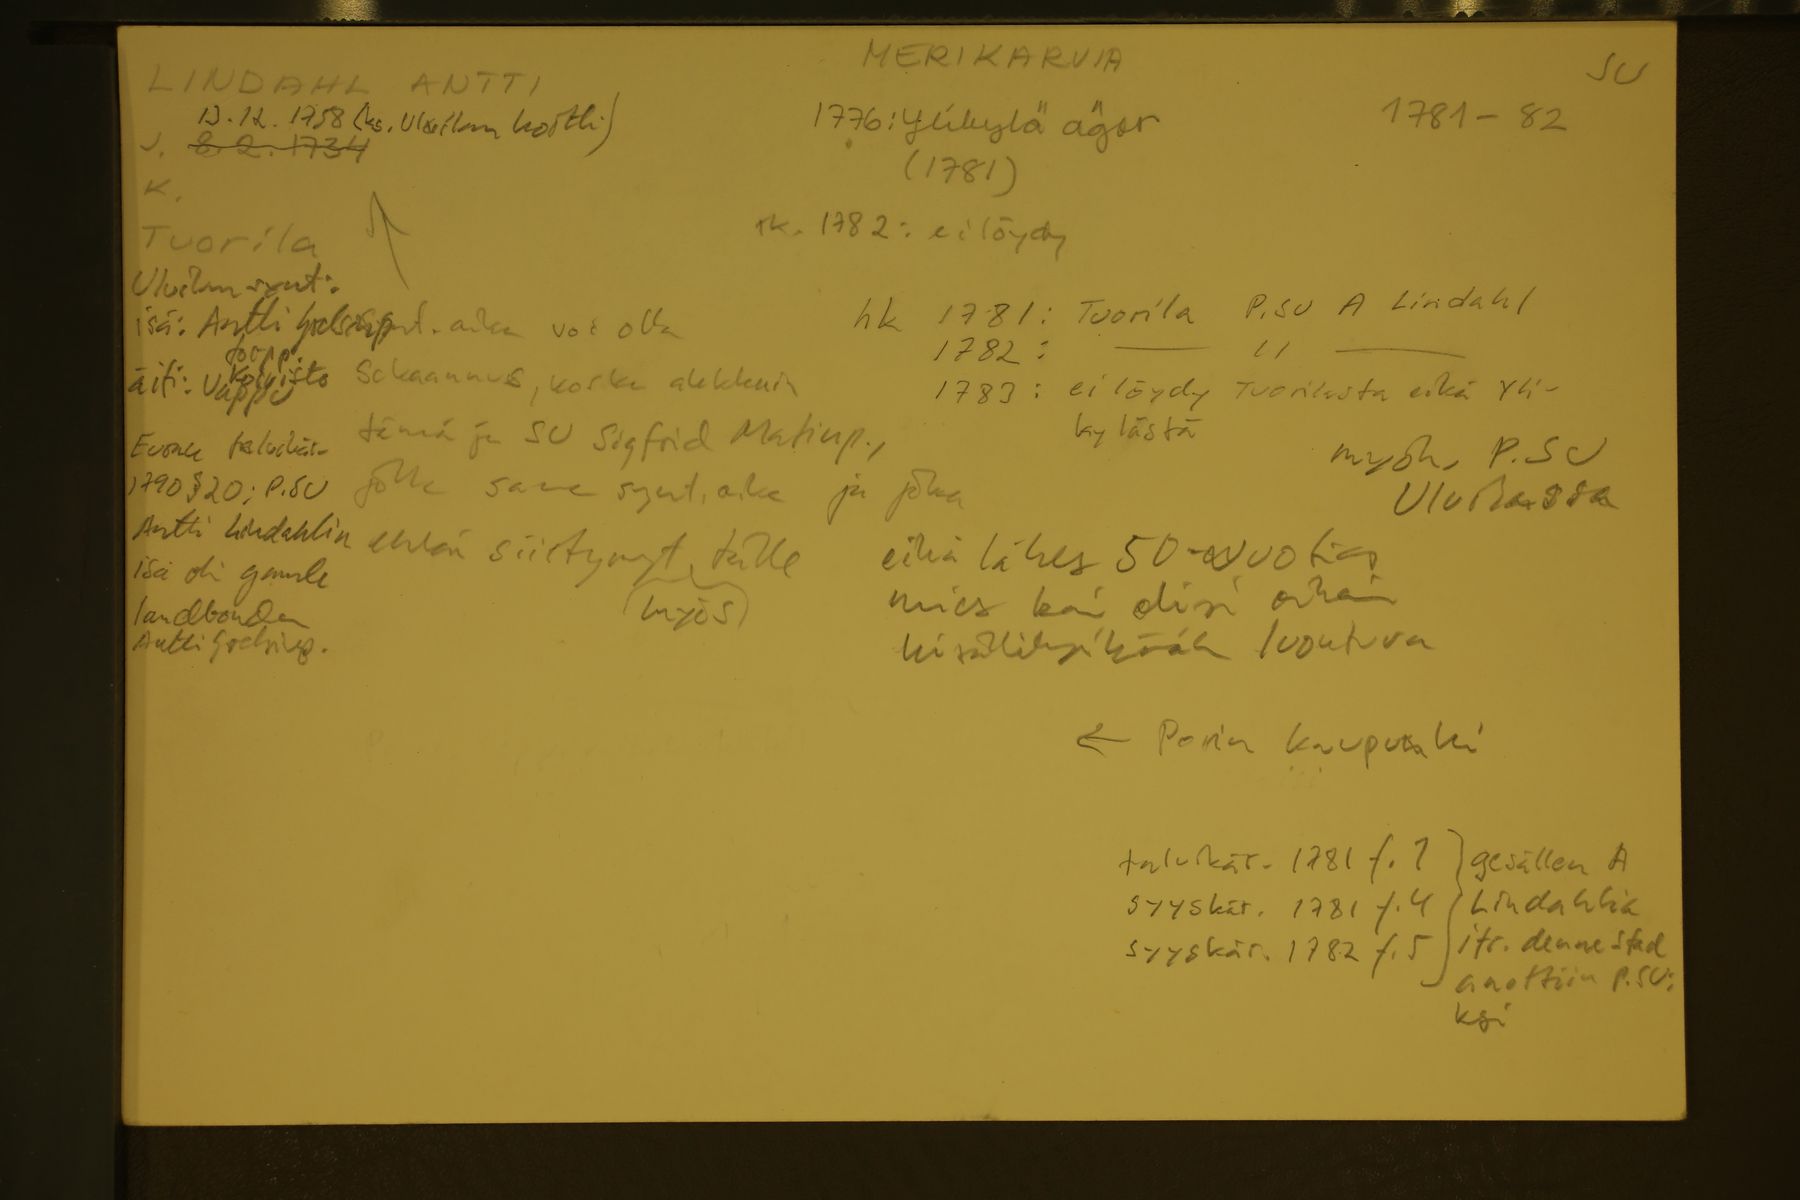 MERIKARVIA
SU
LINDAHL ANTTI
13.12.1758 (ks. Ulvilan kortti)
1776: Ylikylä ägor
1781-82
s. 8.2.1734
(1781)
K.
rk. 1782: ei löydy
Tuorila
Ulvilan synt:
isä: Antti
äiti: Vappu
Euran talvikär.
1790 § 20; P.SU
Antti Lindahlin
isä oli gamle
landbonden
Antti
synt. aika voi olla
sekaannus, koska
tämä ja SU Sigfrid Matinp.,
jolla sama synt. aika ja joka
ehkä siirtynyt tälle
(myös)
hk 1781: Tuorila P.SU A Lindahl
1782: — " —
1783: ei löydy Tuorilasta eikä Yli-
kylästä
myöh. P.SU
Ulvilassa
eikä lähes 50-vuotias
mies kai olisi enää
luontuva
← Porin kaupunki
talvikär. 1781 f. 1
syyskär. 1781 f. 4
syyskär. 1782 f. 5
gesällen A
Lindahlia
itr. denne stad
anottiin P.SU:
ksi